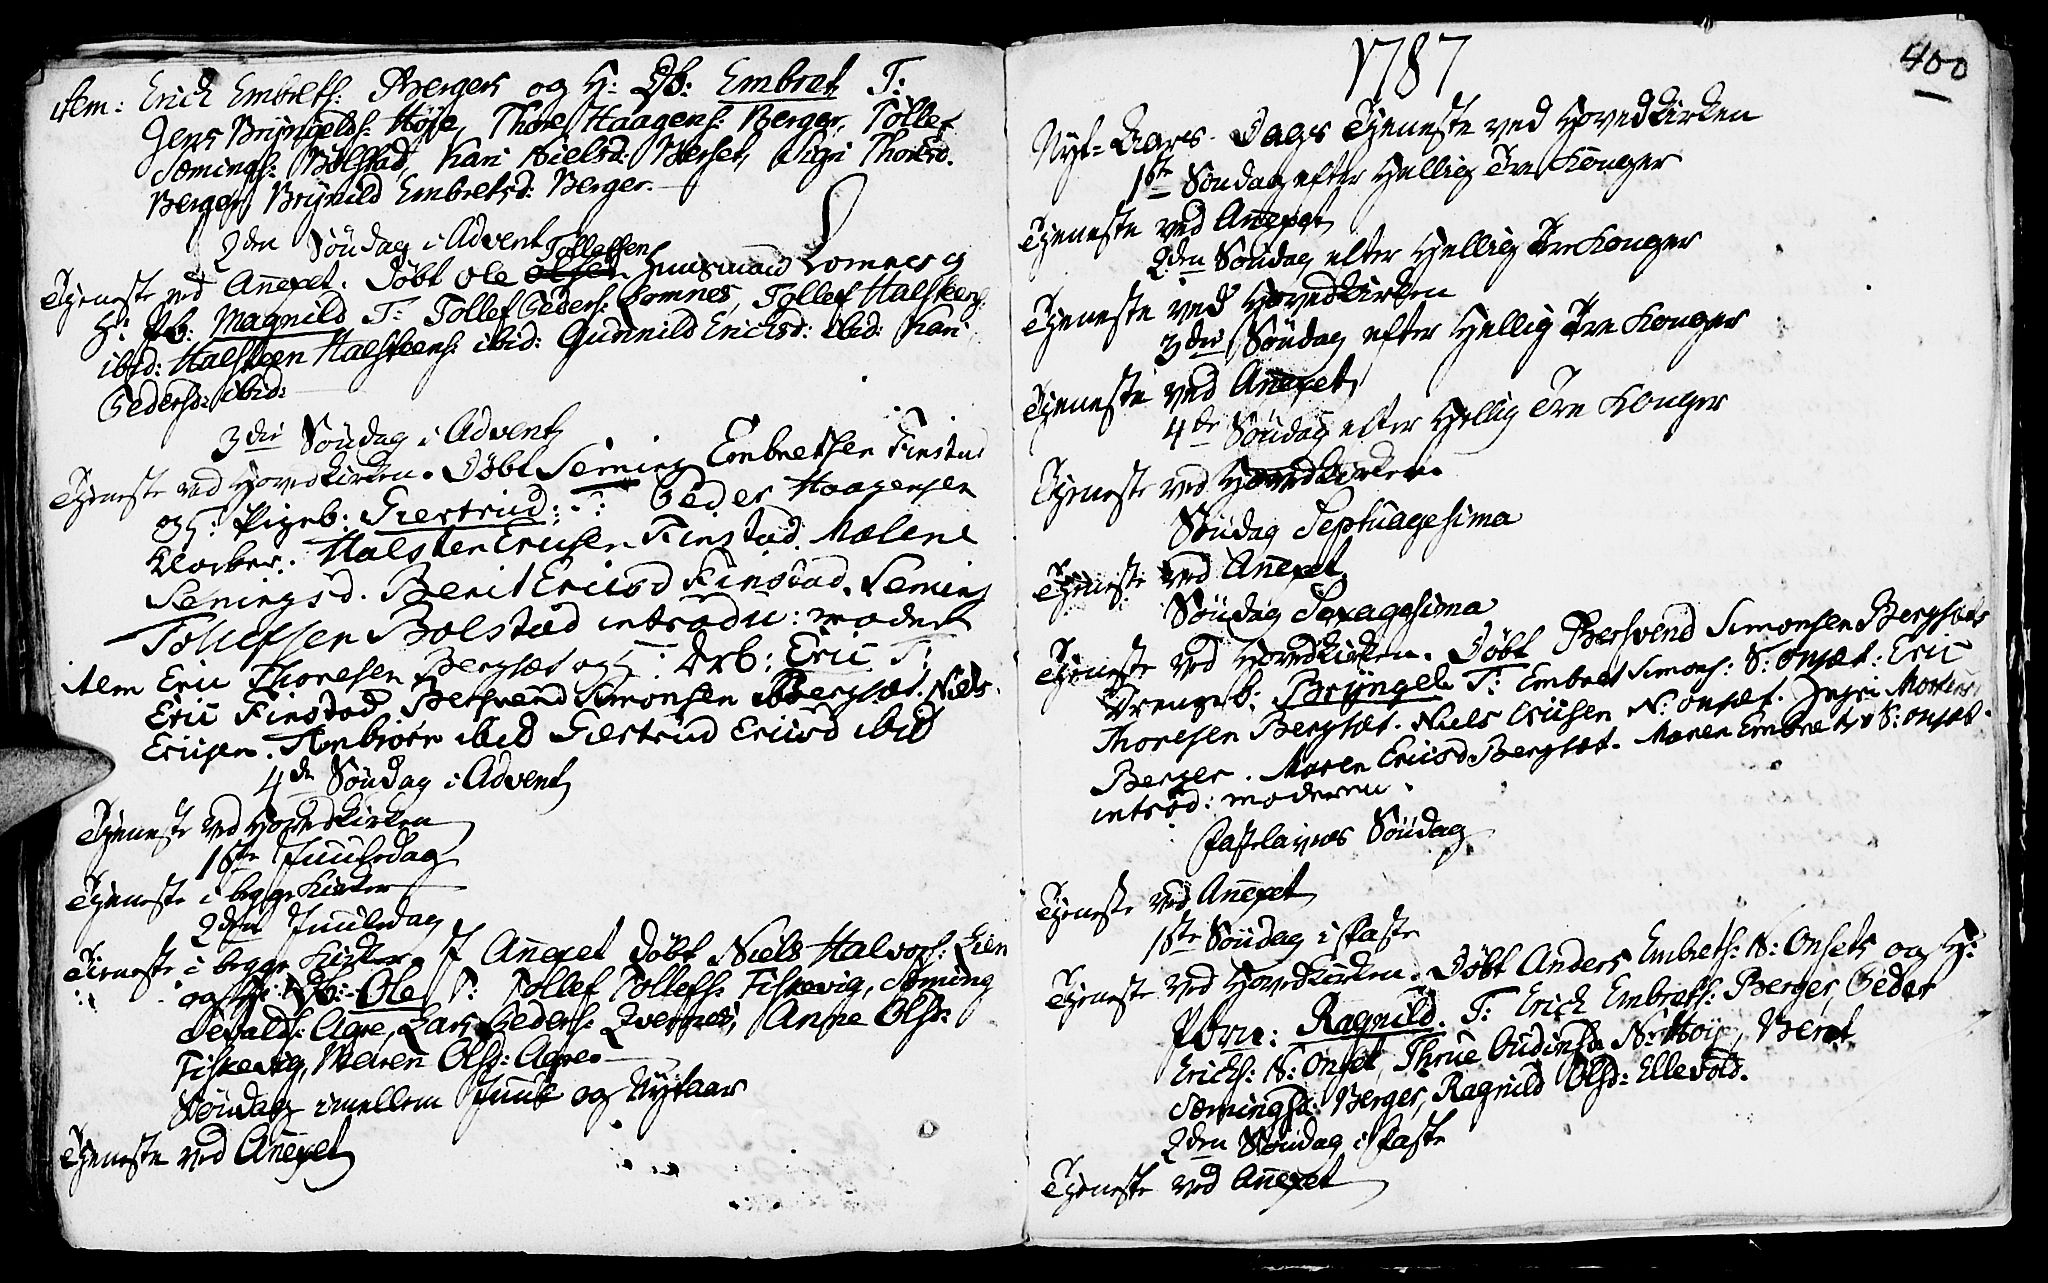 item: Erich Embretsˢ: Berger og H: Db: Embret T:
Jens Bryngelds: Høye, Thore Haagens: Berger, Tollef
Semings: Bolstad, Kari Nielsd: Berset, Sigri Thoresd.
Berger, Brynild Embretsd: Berger.
2den Søndag i Advent
Tollefsen
Tieneste ved Anexet. Døbt Ole Olsen Huusmand Lomnes og
H: Pb: Magnild T: Tollef Peders: Lomnes, Tollef Halsteens:
ibid: Halsteen Halsteens: ibid: Gunnild Ericksd: ibid: Kari
Pedersd: ibid:
3die Søndag i Advent
Tieneste ved Hovedkirken. Døbt Seming Embretsen Finstad
og H: Pigeb: Giertrud: T: Peder Haagensen
Klocker. Halsten Ericsen Finstad. Malene
Semingsd. Berit Ericsd Finstad. Seming
Tollefsen Bolstad introdu: moderen
item Eric Thoresen Bergset og H: Drb: Eric T:
Eric Finstad, Bersvend Simonsen Bergset. Niels
Ericsen. Stenbiørn ibid Giertrud Ericsd ibid
4de Søndag i Advent
Tieneste ved Hovedkirken
1ste Juuledag
Tieneste i begge Kirker
2den Juuledag
Tieneste i begge Kirker. I Anexet døbt Niels Halvors: Lien
og H: Db: Ole T: Tollef Tollefs: Fiskevig, Seming
Sevalds: Agre, Lars Peders: Qvernes, Anne Olsd:
Fiskevig, Maren Olsd: Agre.
Søndag imellem Juul og Nytaar
Tieneste ved Anexet
1787
400
Nyt-Aars-Dags Tieneste ved Hovedkirken
1ste Søndag efter Hellig Tre Konger
Tieneste ved Anexet
2den Søndag efter Hellig Tre Konger
Tieneste ved Hovedkirken
3die Søndag efter Hellig Tre Konger
Tieneste ved Anexet
4de Søndag efter Hellig Tre Konger
Tieneste ved Hovedkirken.
Søndag Septuagesima
Tieneste ved Anexet
Søndag Sexagesima
Tieneste ved Hovedkirken. Døbt Bersvend Simonsen Bergsets
Drengeb: Bryngel T: Embret Simons: S: onset: Eric
Thoresen Bergset. Niels Ericsen N: onset. Ingri Mortensd
Berger. Maren Ericsd Bergset. Maren Embretsd S: onset.
introd: moderen.
Fastelavns Søndag
Tieneste ved Anexet
1ste Søndag i Faste
Tieneste ved Hovedkirken. Døbt Anders Embrets: N: Onsets og H:
Ragnild. T: Erich Embrets: Berger, Peder
Erichs: N: Onset, Thrue Oudensd: N: Høye, Beret
Semingsd: Berger, Ragnild Olsd: Ellevold.
2den Søndag i Faste
Tieneste ved Anexet